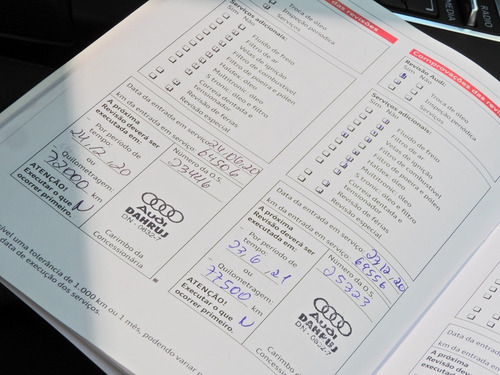 das revisões
Troca de óleo
Inspeção periódica
Serviços adicionais:
Sim Não
Fluido de freio
Filtro de ar
Velas de ignição
Filtro de combustível
Filtro de poeira e pólen
Haldex: óleo
S tronic: óleo e filtro
Correia dentada e
Revisão de férias
Revisão especial
Data da entrada em serviço: 24/06/20
km da entrada em serviço: 61506
A próxima
Revisão deverá ser
executada em:
– Por período de
tempo:
24/12/20
ou
– Quilometragem:
72000 km
ATENÇÃO!
Executar o que
ocorrer primeiro.
N
Número da O.S.
23446
Audi
DAHRUJ
Carimbo da
Concessionária
Comprovações das revi
Revisão Audi:
Sim Não
Troca de óleo
Inspeção periódica
Serviços adicionais:
Sim Não
Fluido de freio
Filtro de ar
Velas de ignição
Filtro de combustível
Filtro de poeira e pólen
Haldex: óleo
S tronic: óleo e filtro
Correia dentada e
Revisão de férias
Revisão especial
Data da entrada em serviço: 22/12/20
km da entrada em serviço: 68556
A próxima
Revisão deverá ser
executada em:
– Por período de
tempo:
23/6/21
ou
– Quilometragem:
77500 km
ATENÇÃO!
Executar o que
ocorrer primeiro.
N
Número da O.S.
25323
Audi
DAHRUJ
Carimbo da
Concessionária
ível uma tolerância de 1.000 km ou 1 mês, podendo variar
data de execução dos serviços.
Data da entrada
km da entrada em
A próxima
Revisão deverá
executada em:
– Por período
tempo:
RADIO
MEDIA